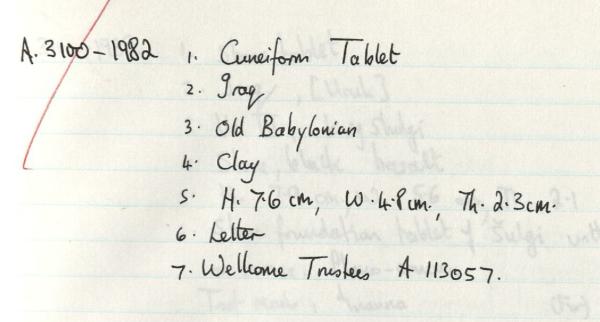 A. 3100-1982 1. Cuneiform Tablet
2. Iraq
3. Old Babylonian
4. Clay
5. H. 7.6 cm, W. 4.8 cm, Th. 2.3 cm.
6. Letter
7. Wellcome Trustees A 113057.